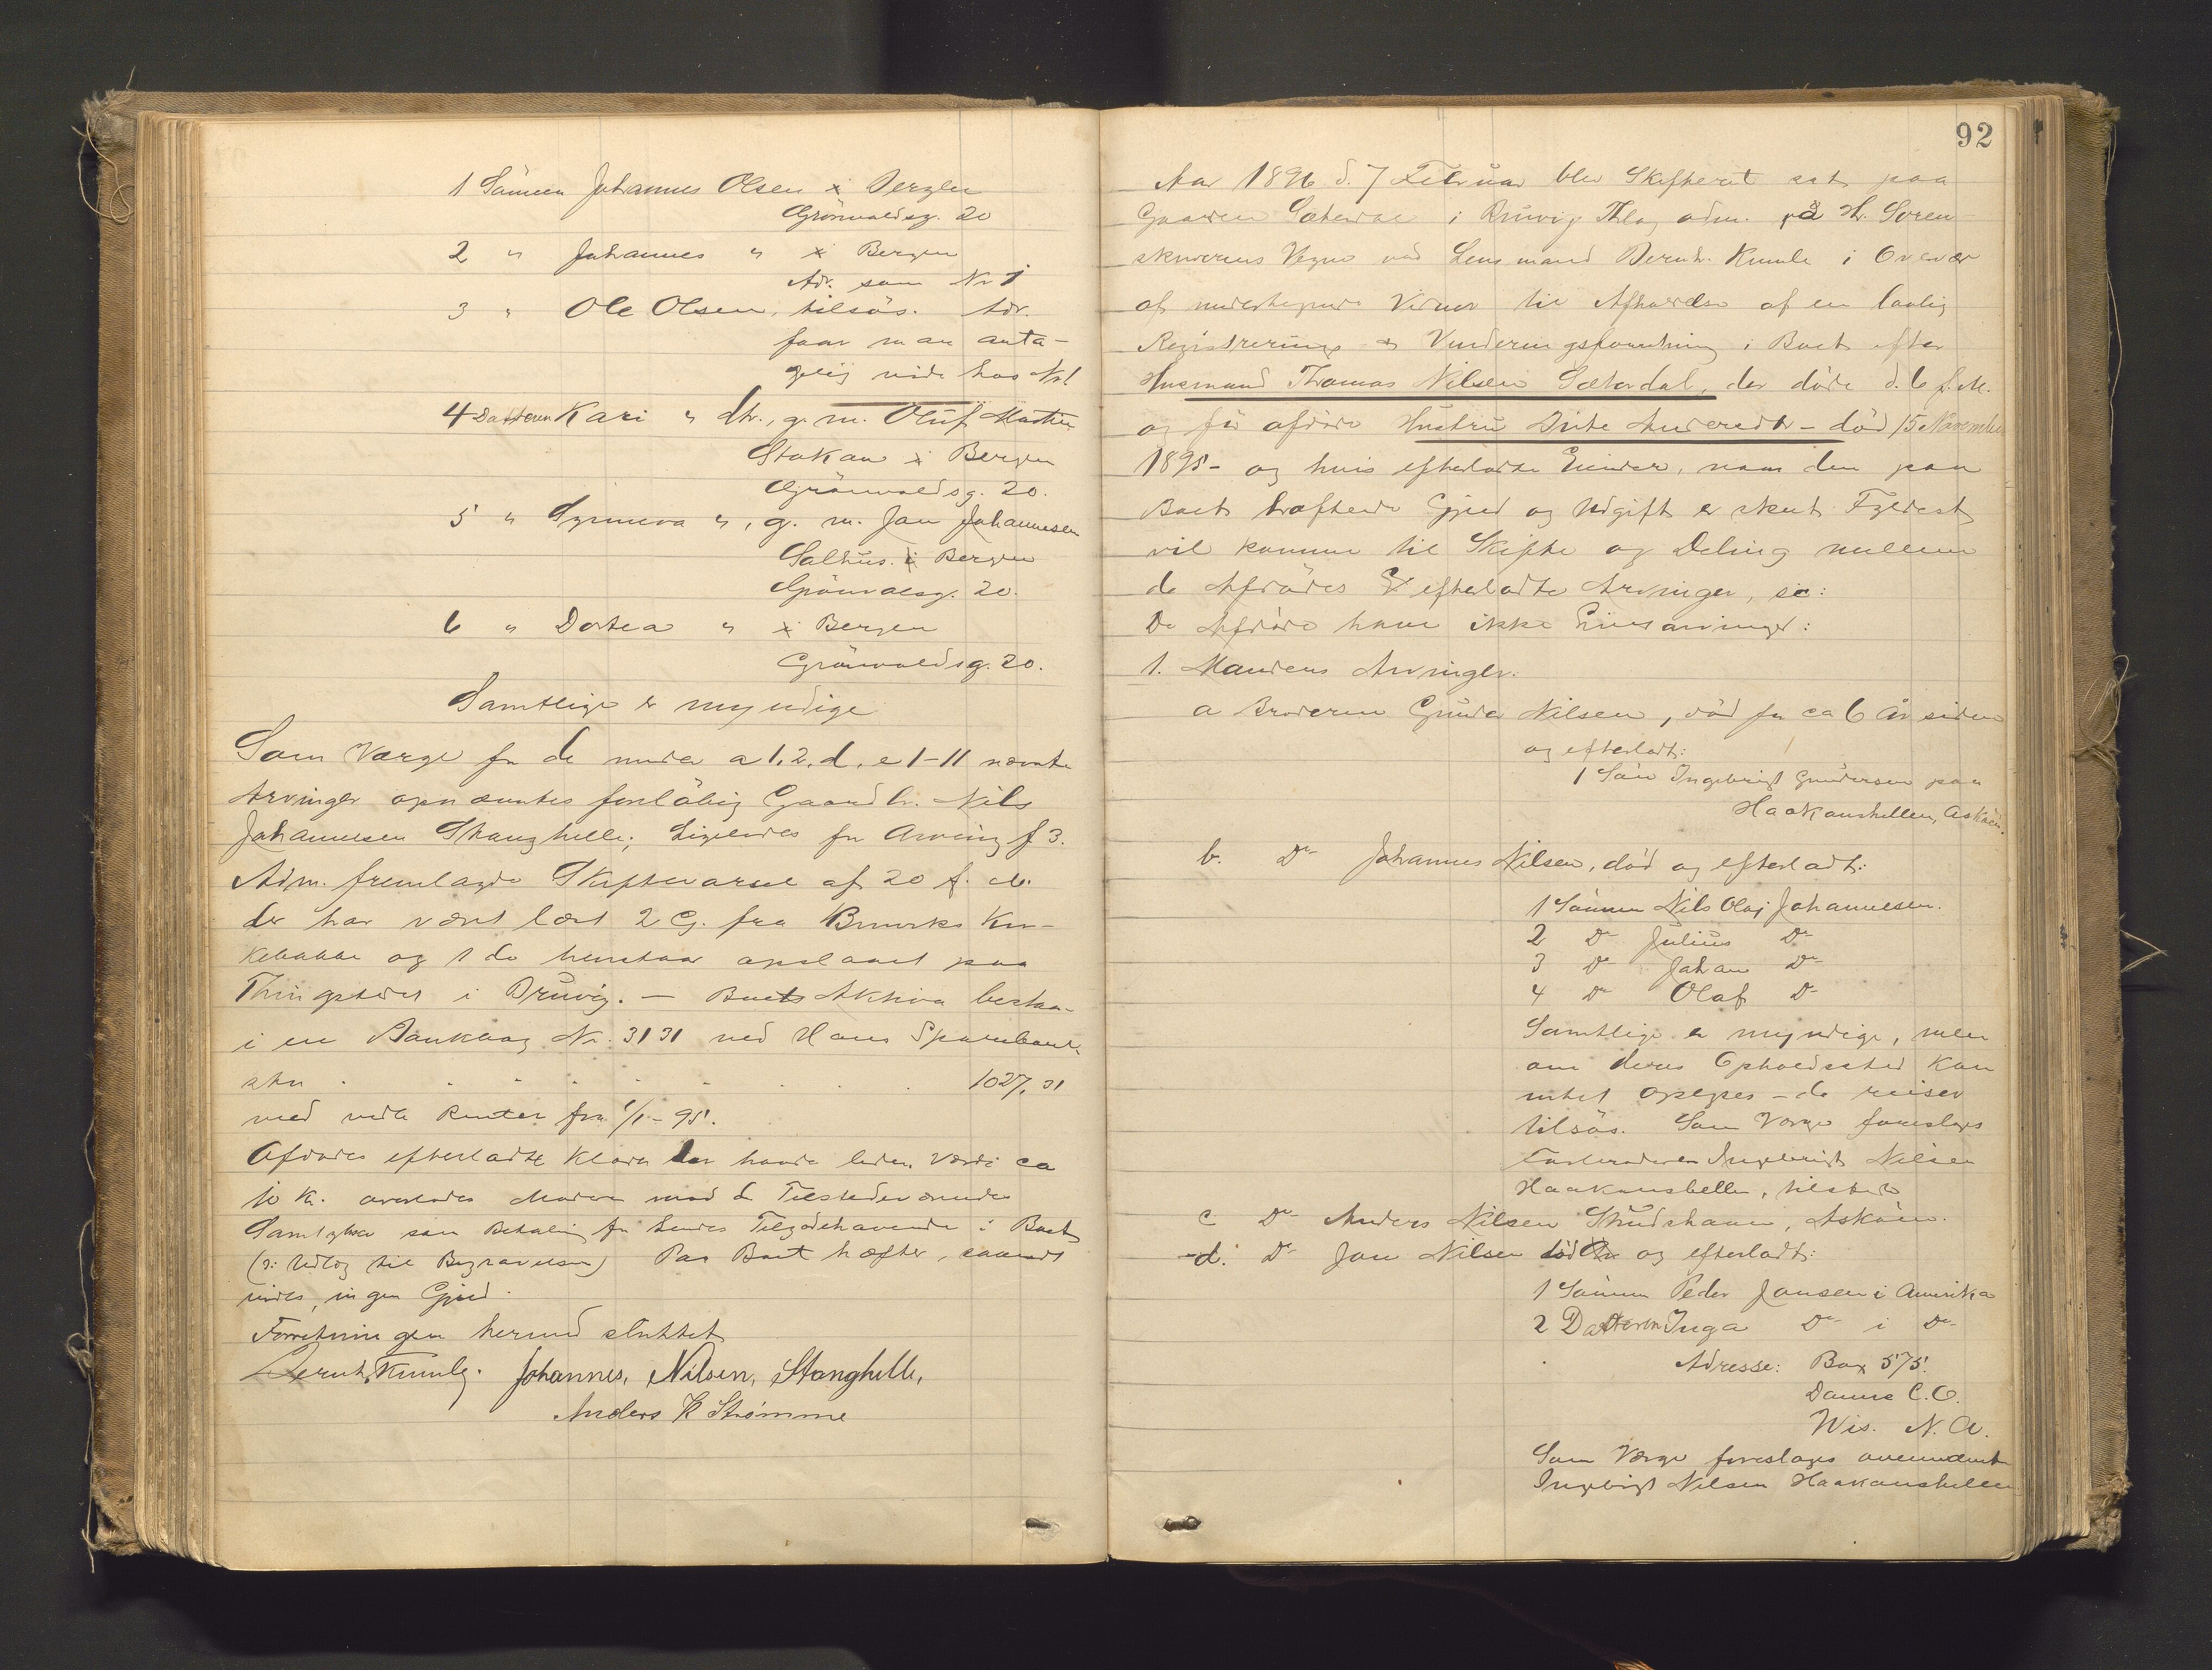 1 Sönnen Johannes Olsen i Bergen
Grönvoldsg. 20
2 " Johannes " i Bergen
Adr. som Nr 1
3 " Ole Olsen, tilsös. Adr.
faar man anta-
gelig vide hos Nr 1
4 Datteren Kari " dtr., g. m. Oluf Martin
Stokan i Bergen
Grönvoldsg. 20.
5 " Synneva ", g. m. Jan Johannesen
Salhus. i Bergen
Grönvolsg. 20.
6 " Dortea " i Bergen
Grönvoldsg. 20.
Samtlige er myndige
Som Værge for de under a 1. 2. d. e 1-11 nævnte
Arvinger opnævntes foreløbig Gaardbr. Nils
Johannesen Stanghelle; Ligeledes for Arving f 3.
Adm. fremlagde Skiftevarsel af 20 f. M.
der har været læst 2 G. fra Bruviks Kir-
kebakke og 1 do henstaar opslaaet paa
Thingstedet i Bruvig. — Boets Aktiva bestaar
i en Bankbog Nr. 3131 ved Haus Sparebank
stor 1027,31
med vedh Renter fra 1/1 - 95.
Afdødes efterladte Klæder der havde liden Værdi ca
10 Kr. overlodes Moderen mod de Tilstedeværendes
Samtykke som Betaling for hendes Tilgodehavende i Boet
(ɔ: Udlæg til Begravelsen) Paa Boet hæfter, saavidt
vides, ingen Gjæld.
Forretningen hermed sluttet
Bernh. Kumle. Johannes, Nilsen, Stanghelle,
Anders K Strømme
92
Aar 1896 d. 7 Februar blev Skifteret sat paa
Gaarden Sæterdal i Bruvig Thlag adm. på Hr. Soren-
skriverens Vegne ved Lensmand Bernh. Kumle i Overvær
af undertegnede Vidner til Afholdelse af en lovlig
Registrerings- & Vurderingsforretning i Boet efter
Husmand Thomas Nilsen Sæterdal, der döde d. 6 f. M.
og før afdöde Hustru Brite Andersdtr - död 15 November
1895 - og hvis efterladte Eiendele, naar den paa
Boet hæftende Gjæld og Udgift er skeet Fyldest,
vil komme til Skifte og Deling mellem
de Afdödes efterladte Arvinger, se:
De Afdöde have ikke Livsarvinger:
1. Mandens Arvinger.
a Broderen Gunder Nilsen, död for ca 6 År siden
og efterladt:
1 Sön Ingebrigt Gundersen paa
Haakonshellen, Asköen.
b. Do Johannes Nilsen, död og efterladt:
1 Sönnen Nils Olaj Johannesen.
2 Do Julius Do
3 Do Johan Do
4 Do Olaf Do
Samtlige er myndige, men
om deres Opholdssted kan
intet opgives - de reiser
tilsös. Som Værge foreslaaes
Farbroderen Ingebrigt Nilsen
Haakonshellen, tilstede
c Do Anders Nilsen Skudshavn, Asköen.
d. Do Jan Nilsen död og efterladt:
1 Sönnen Peder Jansen i Amerika
2 Datteren Inga Do i Do
Adresse: Box 575.
Danne C. O.
Wis. N. A.
Som Værge foreslaaes ovennævnte
Ingebrigt Nilsen Haakonshellen